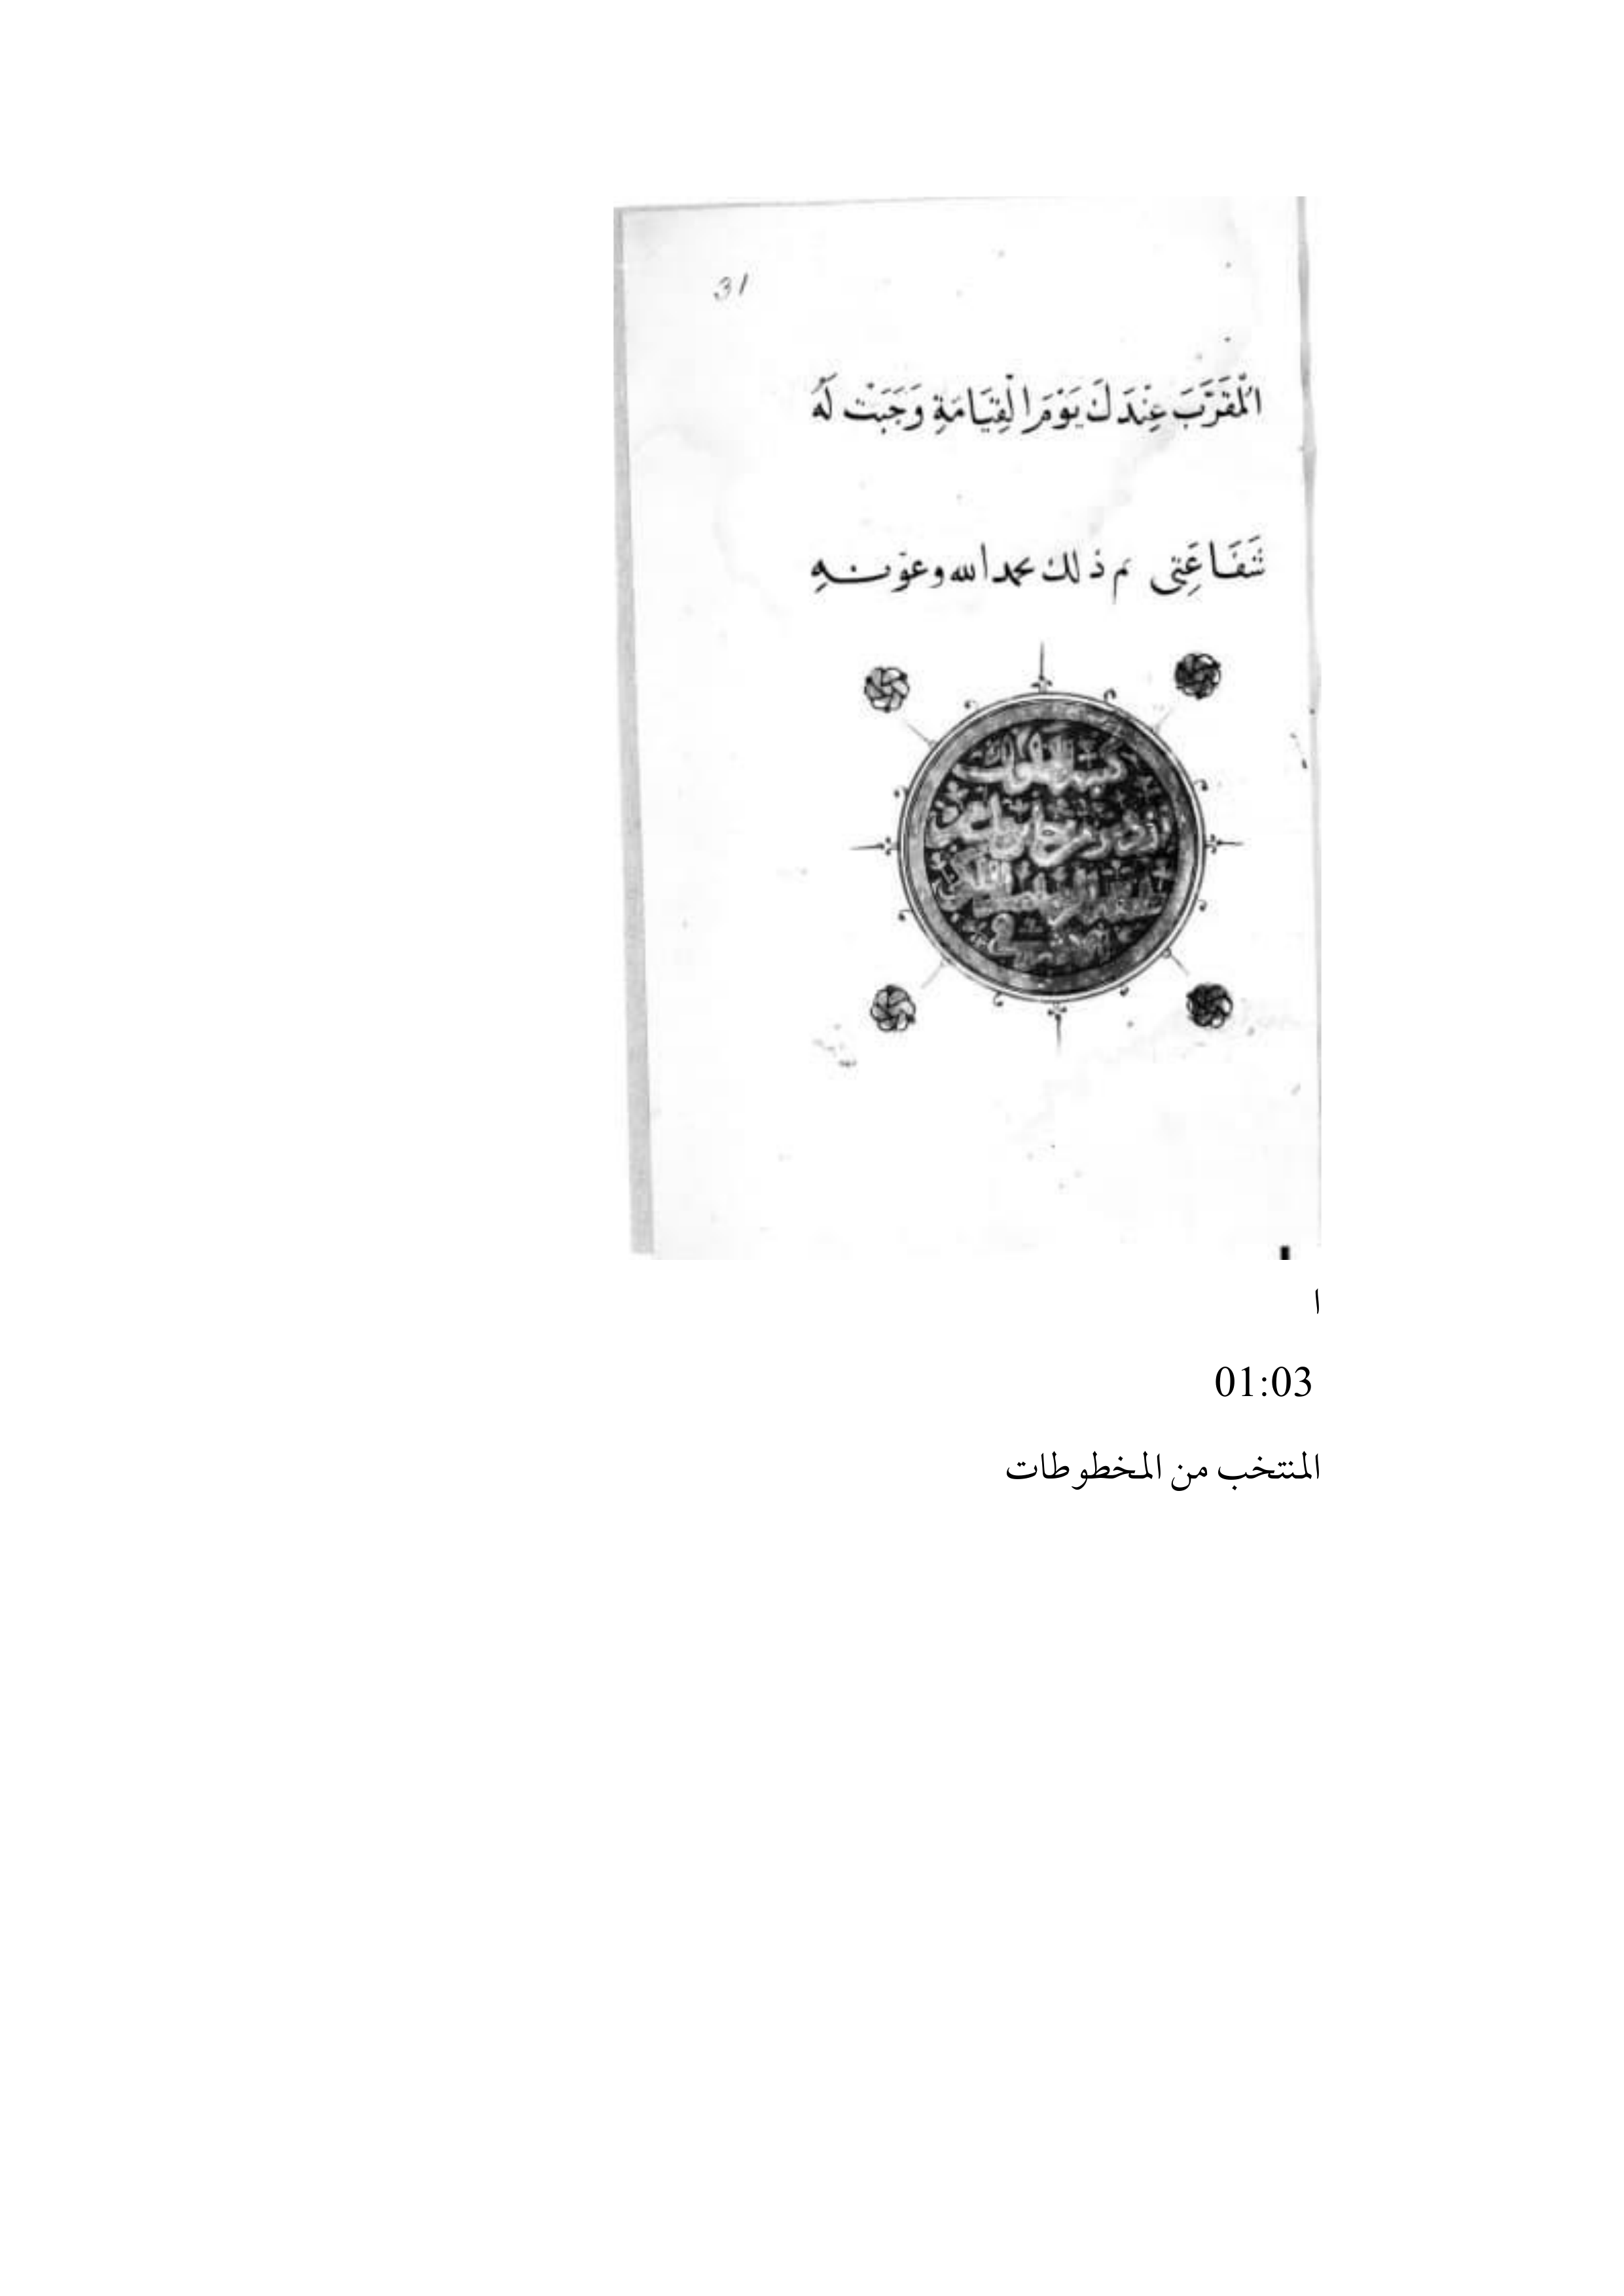 31
الْمُقَرَّبَ عِنْدَكَ يَوْمَ الْقِيَامَةِ وَجَبَتْ لَهُ
شَفَاعَتِى تم ذلك بحمد الله وعونهِ
كتبه المملوك
ا
01:03
المنتخب من المخطوطات